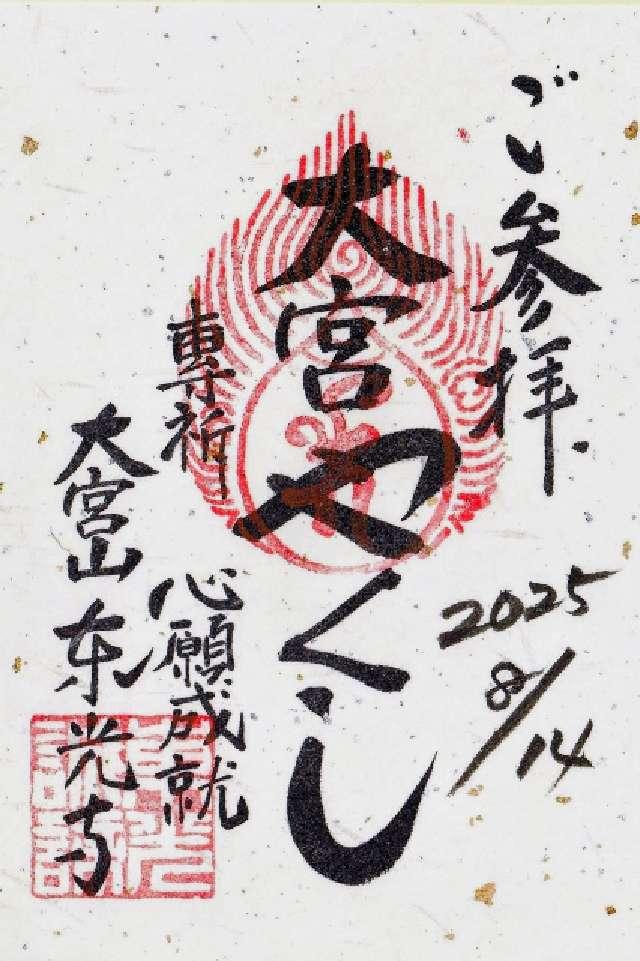 ご参拝
2025
8/14
大宮やくし
專祈
心願成就
大宮山东光寺